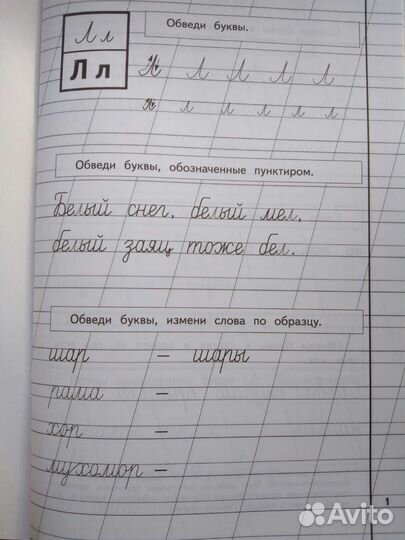 Лл
Обведи буквы.
Лл
Л Л Л Л Л
л л л л л л
Обведи буквы, обозначенные пунктиром.
Белый снег, белый мел,
белый заяц тоже бел.
Обведи буквы, измени слова по образцу.
шар — шары
рама —
хор —
мухомор —
1
Avito